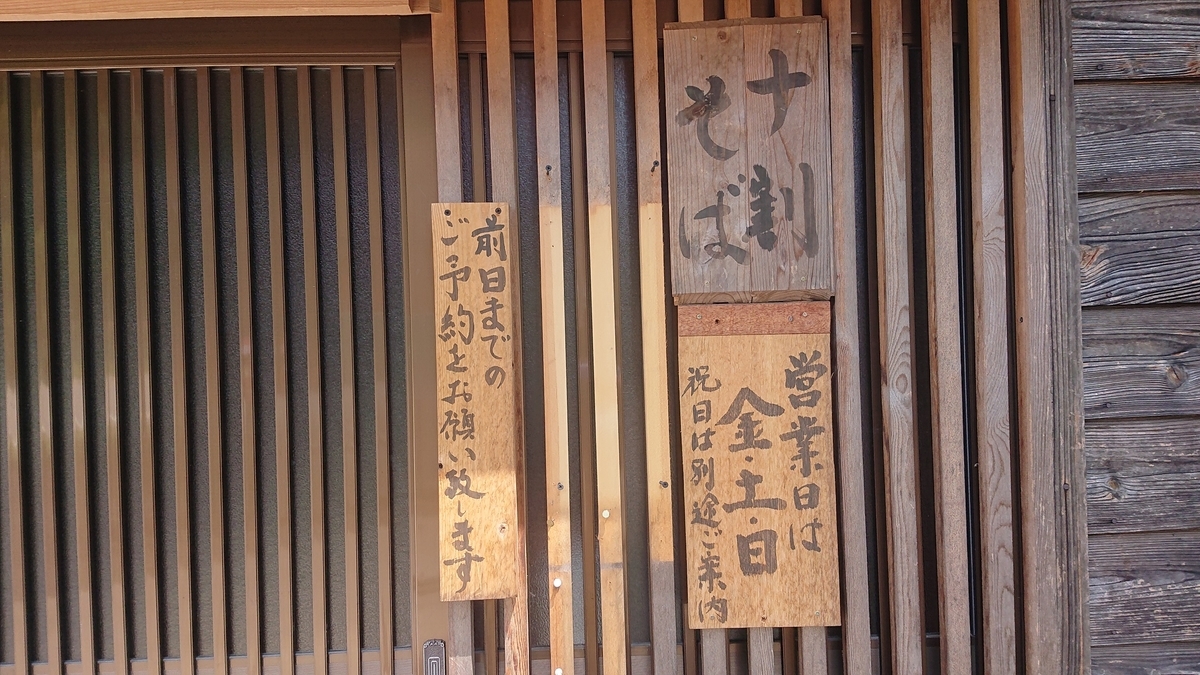 十割
そば
営業日は
金・土・日
祝日は別途ご案内
前日までの
ご予約をお願い致します